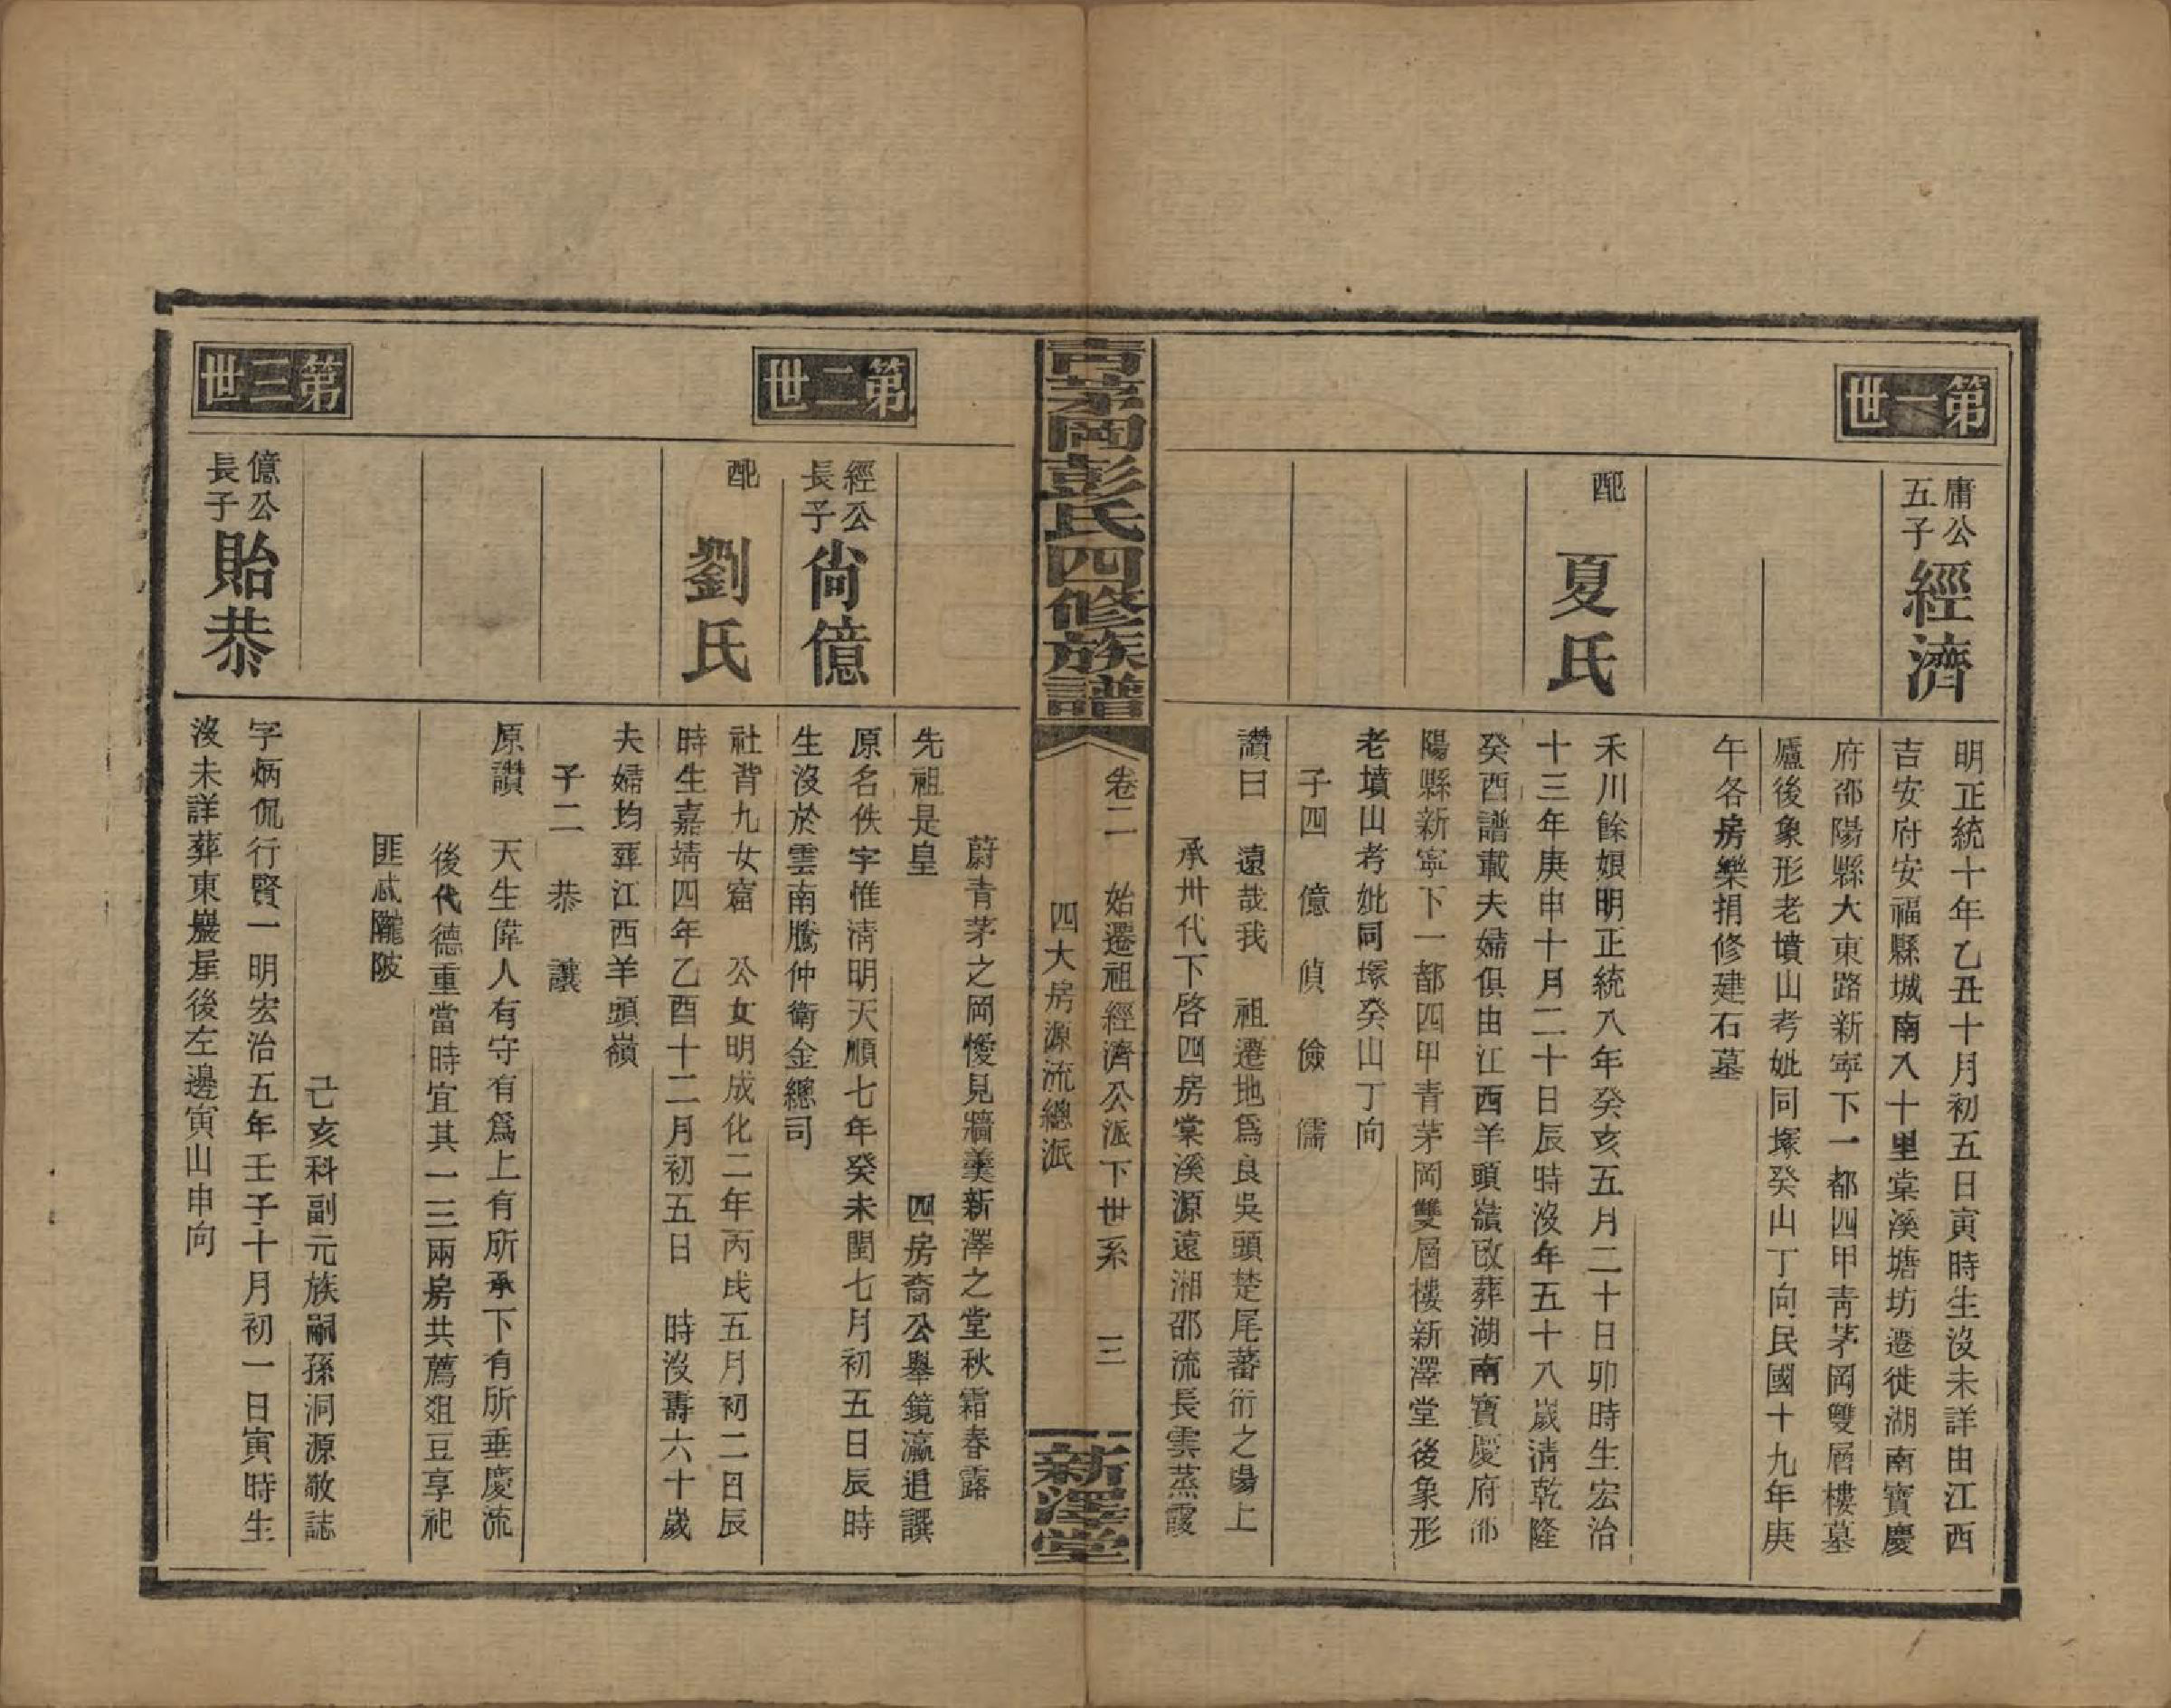 第一世
庸公
五子
經濟
明正統十年乙丑十月初五日寅時生沒未詳由江西
吉安府安福縣城南入十里棠溪塘坊遷徙湖南寶慶
府邵陽縣大東路新寧下一都四甲青茅岡雙層樓墓
廬後象形老墳山考妣同塚癸山丁向民國十九年庚
午各房樂捐修建石墓
配
夏氏
禾川餘娘明正統八年癸亥五月二十日卯時生宏治
十三年庚申十月二十日辰時沒年五十八歲清乾隆
癸酉譜載夫婦俱由江西羊頭嶺改葬湖南寶慶府邵
陽縣新寧下一都四甲青茅岡雙層樓新澤堂後象形
老墳山考妣同塚癸山丁向
子四 億 偵 儉 儒
讚曰 遠哉我 祖遷地爲良吳頭楚尾蕃衍之場上
承卅代下啓四房棠溪源遠湘邵流長雲蒸霞
青茅岡彭氏四修族譜
卷二 始遷祖經濟公派下世系 三
四大房源流總派
新澤堂
蔚青茅之岡愾見牆羹新澤之堂秋霜春露
先祖是皇 四房裔公舉鏡瀛追譔
第二世
經公
長子
尙億
原名佚字惟淸明天順七年癸未閏七月初五日辰時
生沒於雲南騰仲衛金總司
配
劉氏
社背九女窟 公女明成化二年丙戌五月初二日辰
時生嘉靖四年乙酉十二月初五日 時沒壽六十歲
夫婦均葬江西羊頭嶺
子二 恭 讓
原讚 天生偉人有守有爲上有所承下有所垂慶流
後代德重當時宜其一三兩房共薦俎豆享祀
匪忒隴陂
己亥科副元族嗣孫洞源敬誌
第三世
億公
長子
貽恭
字炳侃行賢一明宏治五年壬子十月初一日寅時生
沒未詳葬東巖星後左邊寅山申向